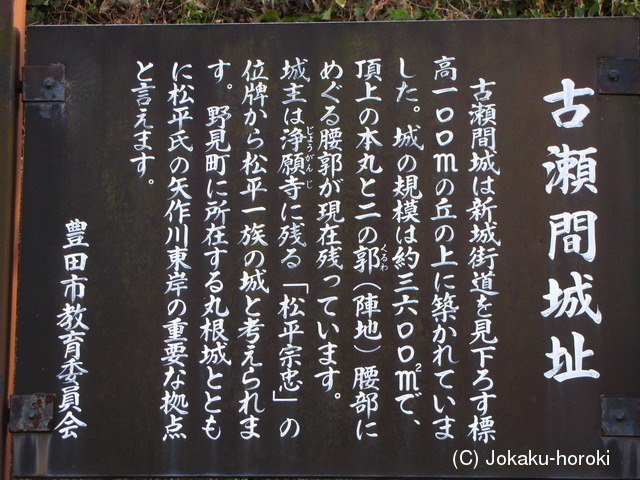 古瀬間城址
古瀬間城は新城街道を見下ろす標
高一〇〇mの丘の上に築かれていま
した。城の規模は約三六〇〇㎡で、
頂上の本丸と二の郭（陣地）腰部に
くるわ
めぐる腰郭が現在残っています。
城主は浄願寺に残る「松平宗忠」の
じょうがんじ
位牌から松平一族の城と考えられま
す。野見町に所在する丸根城ととも
に松平氏の矢作川東岸の重要な拠点
と言えます。
豊田市教育委員会
(C) Jokaku-horoki